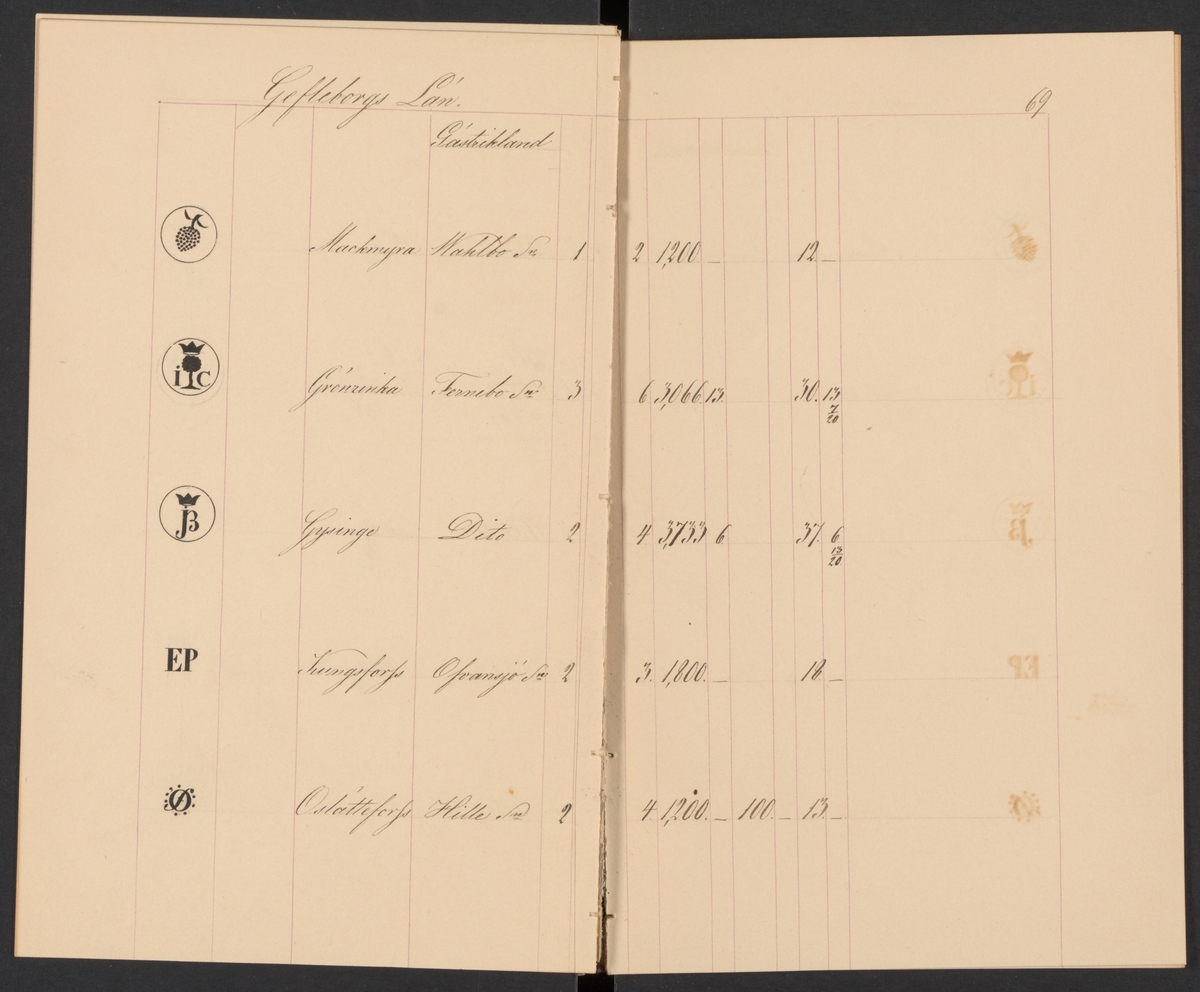 Gefleborgs Län.
69
Gästrikland
Mackmyra Wahlbo Sn 1 2 1,200 _ 12. _
iC Grönsinka Fernebo Sn 3 6 3,066. 13. 30. 13 7/20
JB Gysinge Dito 2 4 3,733 6 37. 6 13/20
EP Kungsforss Ofvansjö Sn 2 3. 1,800. _ 18 _
Oslättforss Hille Sn 2 4 1,200. _ 100. _ 13. _